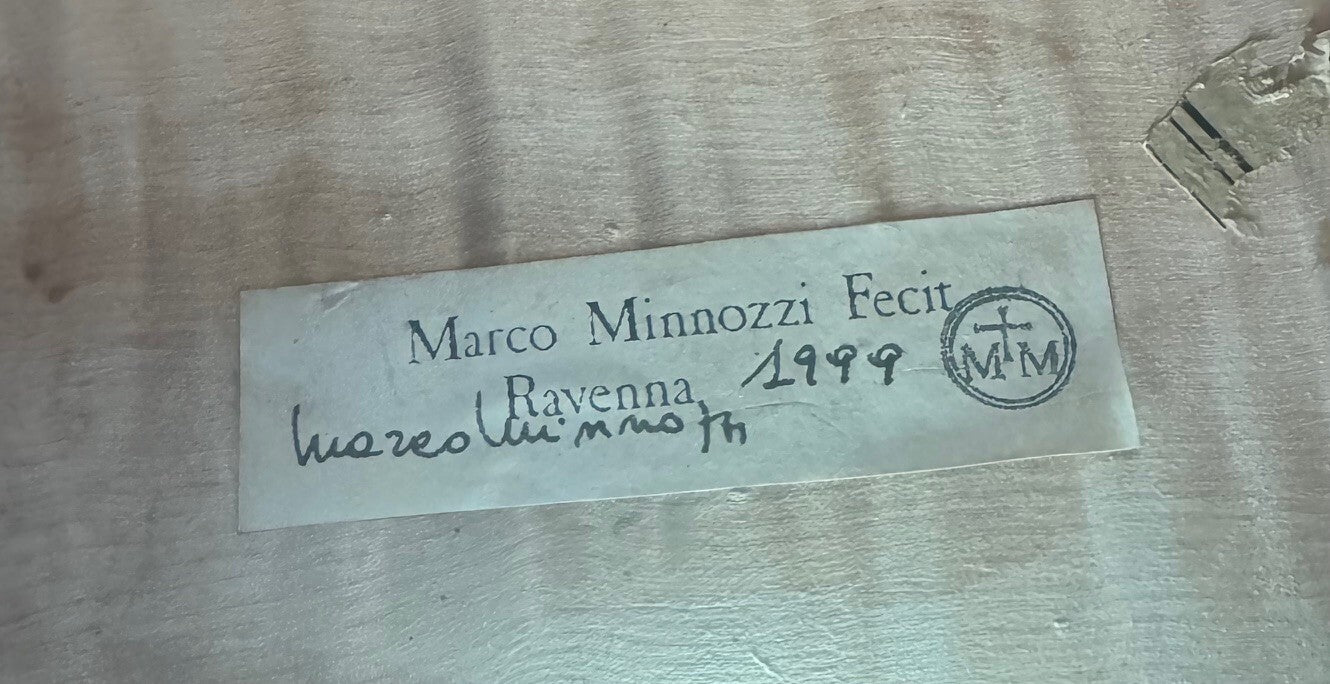 Marco Minnozzi Fecit
Ravenna, 1999
M M
Marco Minnozzi